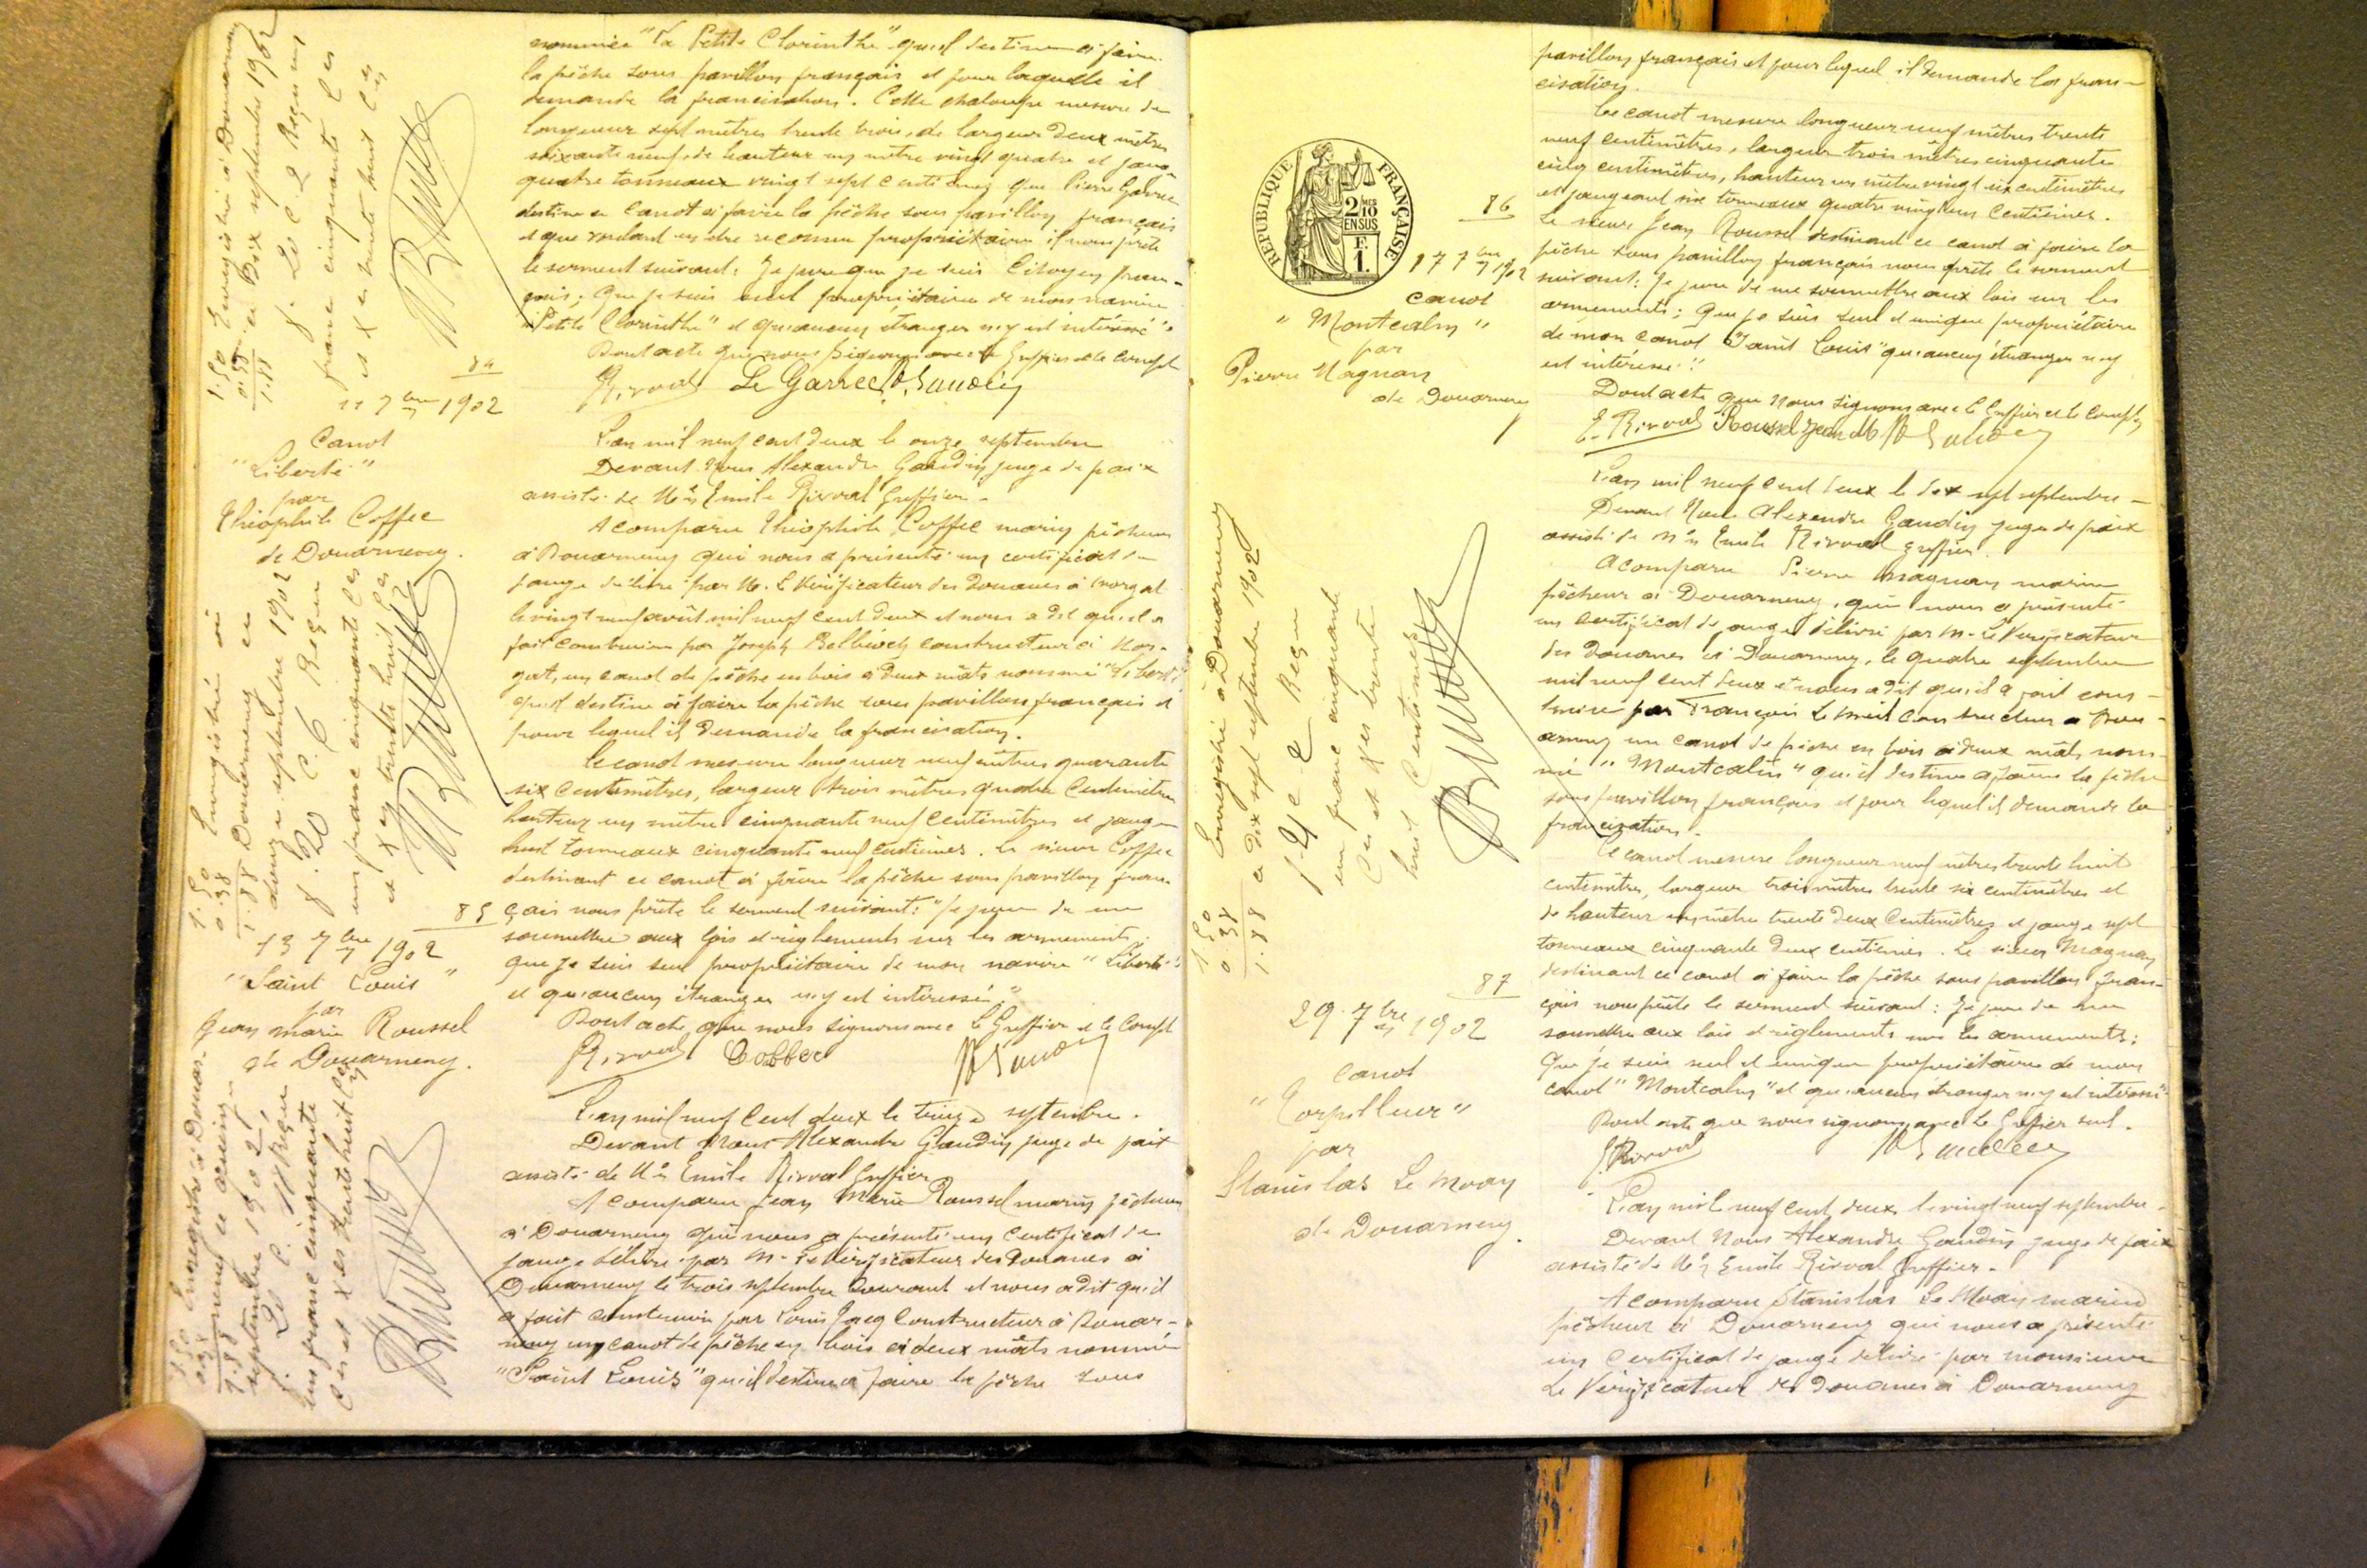 nommée "La Petite Clorinthe" qu'il destine à faire
la pêche sous pavillon français et pour laquelle il
demande la francisation. Cette chaloupe mesure de
longueur sept mètres trente trois, de largeur deux mètres
soixante neuf, de hauteur un mètre vingt quatre et jauge
quatre tonneaux vingt sept centièmes que Pierre Garrec
destine ce canot à faire la pêche sous pavillon français
et que voulant en être reconnu propriétaire il nous prête
le serment suivant: Je jure que je suis Citoyen fran-
çais; Que je suis seul propriétaire de mon navire
"Petite Clorinthe" et qu'aucun étranger n'y est intéressé"
Dont acte que nous signons avec le Greffier et le Compt
Rirval Le Garrec A Gaudin
1.50
0.38
1.88
Enregistré à Douarnenez
le Dix septembre 1902
f. 20 C. 2 Reçu un
franc cinquante Ces
et Xes trente huit Ces
84
11 7bre 1902
Canot
"Liberté"
par
Théophile Coffec
de Douarnenez.
L'an mil neuf cent deux le onze septembre
Devant Nous Alexandre Gaudin juge de paix
assisté de Me Emile Rirval Greffier.
A comparu Théophile Coffec marin pêcheur
à Douarnenez qui nous a présenté un certificat de
jauge délivré par M. Le Vérificateur des Douanes à Morgat
le vingt neuf août mil neuf cent deux et nous a dit qu'il a
fait construire par Joseph constructeur à Mor-
gat, un canot de pêche en bois à deux mâts nommé "Liberté"
qu'il destine à faire la pêche sous pavillon français et
pour lequel il demande la francisation.
Ce canot mesure longueur neuf mètres quarante
six centimètres, largeur trois mètres quatre centimètres
hauteur un mètre cinquante neuf centimètres et jauge
huit tonneaux cinquante neuf centièmes. Le sieur Coffec
destinant ce canot à faire la pêche sous pavillon fran-
çais nous prête le serment suivant: "Je jure de me
soumettre aux lois et règlements sur les armements;
que je suis seul propriétaire de mon navire "Liberté"
et qu'aucun étranger n'y est intéressé"
Dont acte, que nous signons avec le Greffier et le Compt
Rirval Coffec A Gaudin
1.50
0.38
1.88
Enregistré à
Douarnenez le
douze septembre 1902
f. 20 C. 6 Reçu
un franc cinquante Ces
et Xes trente huit Ces
85
13 7bre 1902
"Saint Louis"
par
Jean Marie Roussel
de Douarnenez.
L'an mil neuf cent deux le treize septembre.
Devant Nous Alexandre Gaudin juge de paix
assisté de Me Emile Rirval Greffier
A comparu Jean Marie Roussel marin pêcheur
à Douarnenez qui nous a présenté un certificat de
jauge délivré par M. Le Vérificateur des Douanes à
Douarnenez le trois septembre courant et nous a dit qu'il
a fait construire par Louis Jacq Constructeur à Douar-
nenez un canot de pêche en bois à deux mâts nommé
"Saint Louis" qu'il destine à faire la pêche sous
1.50
0.38
1.88
Enregistré à Douar-
nenez le quinze
septembre 1902,
f. 20 C. 11 Reçu
un franc cinquante
Ces et Xes trente huit Ces
pavillon français et pour lequel il demande la fran-
cisation.
Ce canot mesure longueur neuf mètres trente
neuf centimètres, largeur trois mètres cinquante
cinq centimètres, hauteur un mètre vingt six centimètres
et jaugeant six tonneaux quatre vingt un centièmes.
Le sieur Jean Roussel destinant ce canot à faire la
pêche sous pavillon français nous prête le serment
suivant: Je jure de me soumettre aux lois sur les
armements; Que je suis seul et unique propriétaire
de mon canot "Saint Louis" qu'aucun étranger n'y
est intéressé."
Dont acte que nous signons avec le Greffier et le Compt
E. Rirval Roussel Jean M A Gaudin
RÉPUBLIQUE FRANÇAISE
2/10MES
EN SUS
1F.
86
17 7bre 1902
canot
"Montcalm"
par
Pierre Magnan
de Douarnenez
L'an mil neuf cent deux le dix sept septembre
Devant Nous Alexandre Gaudin juge de paix
assisté de Me Emile Rirval greffier.
A comparu Pierre Magnan marin
pêcheur à Douarnenez, qui nous a présenté
un certificat de jauge délivré par M. Le Vérificateur
des Douanes à Douarnenez, le quatre septembre
mil neuf cent deux et nous a dit qu'il a fait cons-
truire par François Le constructeur à Dou-
arnenez un canot de pêche en bois à deux mâts nom-
mé "Montcalm" qu'il destine à faire la pêche
sous pavillon français et pour lequel il demande la
francisation.
Ce canot mesure longueur neuf mètres trente huit
centimètres, largeur trois mètres trente six centimètres et
de hauteur un mètre trente deux centimètres et jauge sept
tonneaux cinquante deux centièmes. Le sieur Magnan
destinant ce canot à faire la pêche sous pavillon fran-
çais nous prête le serment suivant: Je jure de me
soumettre aux lois et règlements sur les armements:
Que je suis seul et unique propriétaire de mon
canot "Montcalm" et qu'aucun étranger n'y est intéressé"
Dont acte que nous signons avec le Greffier seul.
E. Rirval A Gaudin
1.50
0.38
1.88
Enregistré à Douarnenez
le dix sept septembre 1902
Reçu
un franc cinquante
Ces et Xes trente
huit Centimes
87
29 7bre 1902
canot
"Torpilleur"
par
Stanislas Le Moan
de Douarnenez.
L'an mil neuf cent deux le vingt neuf septembre.
Devant Nous Alexandre Gaudin juge de paix
assisté de Me Emile Rirval Greffier.
A comparu Stanislas Le Moan marin
pêcheur à Douarnenez qui nous a présenté
un certificat de jauge délivré par monsieur
Le Vérificateur des Douanes à Douarnenez